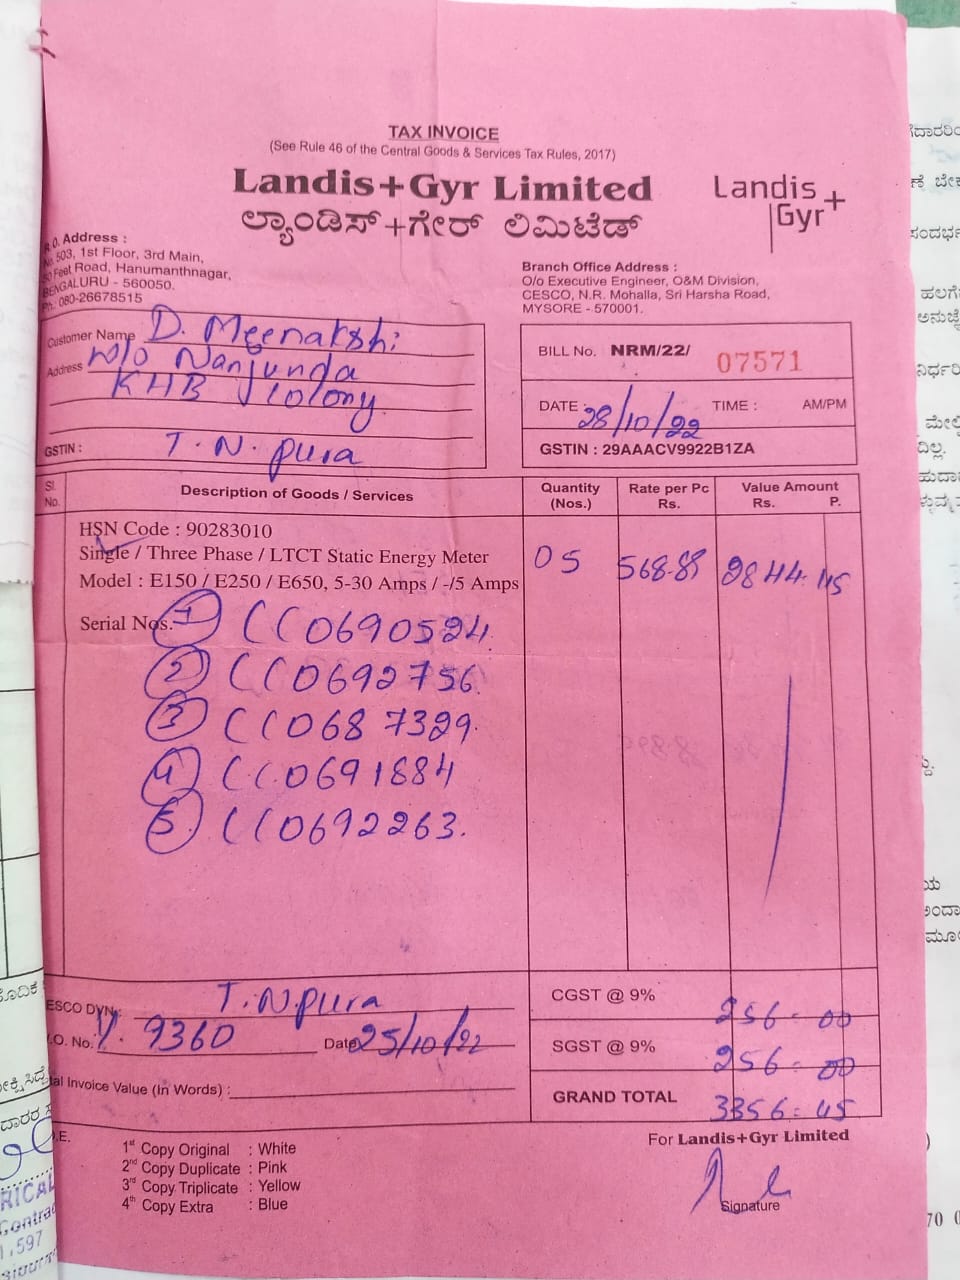 TAX INVOICE
(See Rule 46 of the Central Goods & Services Tax Rules, 2017)
Landis+Gyr Limited
ಲ್ಯಾಂಡಿಸ್+ಗೇರ್ ಲಿಮಿಟೆಡ್
Landis+
Gyr
R.O. Address :
No. 503, 1st Floor, 3rd Main,
Feet Road, Hanumanthnagar,
BENGALURU - 560050.
Ph. 080-26678515
Branch Office Address :
O/o Executive Engineer, O&M Division,
CESCO, N.R. Mohalla, Sri Harsha Road,
MYSORE - 570001.
Customer Name D. Meenakshi
Address w/o Nanjunda
KHB Colony
GSTIN : T. N. pura
BILL No. NRM/22/ 07571
DATE : 28/10/22 TIME : AM/PM
GSTIN : 29AAACV9922B1ZA
Sl. No. Description of Goods / Services Quantity (Nos.) Rate per Pc Rs. Value Amount Rs. P.
HSN Code : 90283010
Single / Three Phase / LTCT Static Energy Meter 05 568.89 2844.45
Model : E150 / E250 / E650, 5-30 Amps / -/5 Amps
Serial Nos. 1 CC0690524
2 CC0692756
3 CC0687329
4 CC0691884
5 CC0692263
ESCO DVN.: T.N.pura
.O. No. 9360 Date 25/10/22
al Invoice Value (In Words) :
CGST @ 9% 256-00
SGST @ 9% 256-00
GRAND TOTAL 3356-45
.E.
1st Copy Original : White
2nd Copy Duplicate : Pink
3rd Copy Triplicate : Yellow
4th Copy Extra : Blue
For Landis+Gyr Limited
Signature